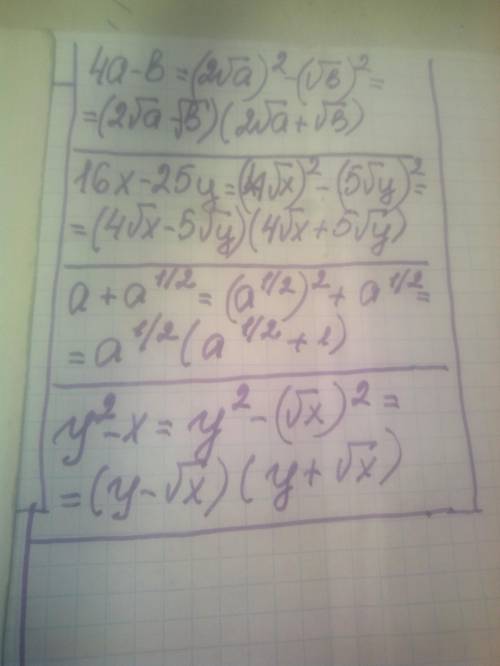 4a-b=(2√a)²-(√b)²=
=(2√a-√b)(2√a+√b)
16x-25y=(4√x)²-(5√y)²=
=(4√x-5√y)(4√x+5√y)
a+a^1/2=(a^1/2)²+a^1/2=
=a^1/2(a^1/2+1)
y²-x=y²-(√x)²=
=(y-√x)(y+√x)